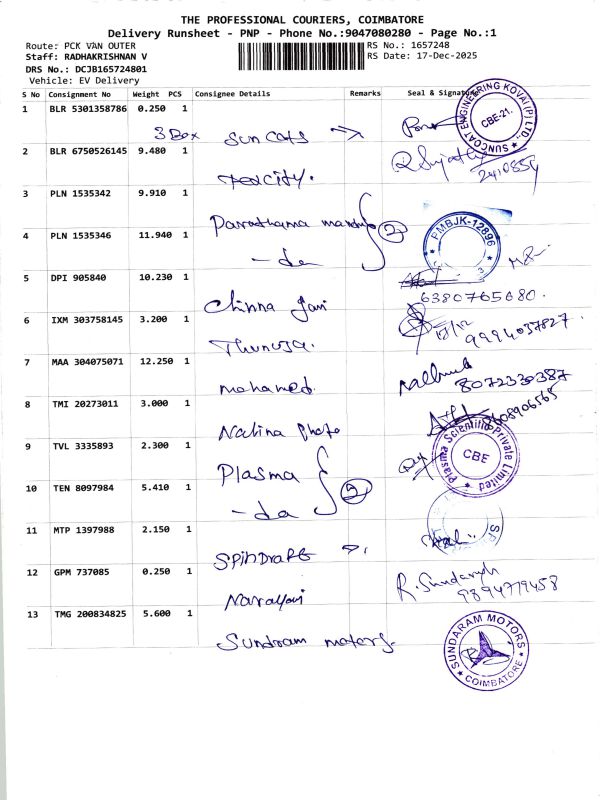 THE PROFESSIONAL COURIERS, COIMBATORE
Delivery Runsheet - PNP - Phone No.:9047080280 - Page No.:1
Route: PCK VAN OUTER RS No.: 1657248
Staff: RADHAKRISHNAN V RS Date: 17-Dec-2025
DRS No.: DCJB165724801
Vehicle: EV Delivery
S No Consignment No Weight PCS Consignee Details Remarks Seal & Signature
1 BLR 5301358786 0.250 1
3 Box Sun Coats
SUNCOAT ENGINEERING KOVAI (P) LTD. CBE-21.
2 BLR 6750526145 9.480 1
Toxcity.
3 PLN 1535342 9.910 1
Parathama 2
PMBJK-12896
4 PLN 1535346 11.940 1
- da
5 DPI 905840 10.230 1
Chinna
6380765680.
6 IXM 303758145 3.200 1
Thanuja.
9994037827.
7 MAA 304075071 12.250 1
mohamed.
8072330387
8 TMI 20273011 3.000 1
Nalina Photo
9 TVL 3335893 2.300 1
Plasma 2
Plasma Scientific Private Limited CBE
10 TEN 8097984 5.410 1
- da
11 MTP 1397988 2.150 1
12 GPM 737085 0.250 1
R. Sundaresh
9894779458
13 TMG 200834825 5.600 1
Sundram motors.
SUNDARAM MOTORS COIMBATORE